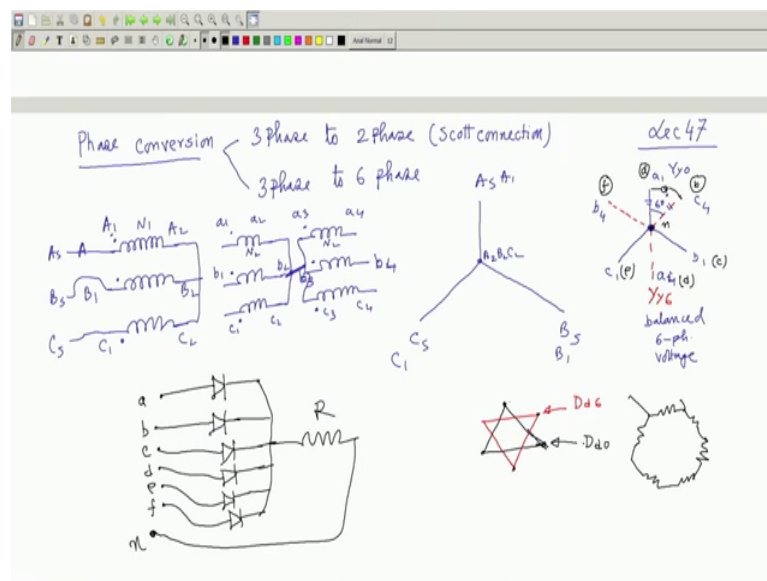 Arial Normal 12
Phase conversion
3 Phase to 2 Phase (Scott connection)
3 Phase to 6 phase
Lec 47
A1 N1 A2
As A
Bs B1 B2
Cs C1 C2
a1 a2 a3 a4
N2 N2
b1 b2 b3 b4
c1 c2 c3 c4
As A1
A2B2C2
Cs
C1
Bs
B1
a a1 Yy0
f b
b4 60° c4
n
c1 (e) b1 (c)
a4 (d)
Yy6
balanced
6-ph.
voltage
a
b
c
d
e
f
n
R
Dd6
Dd0